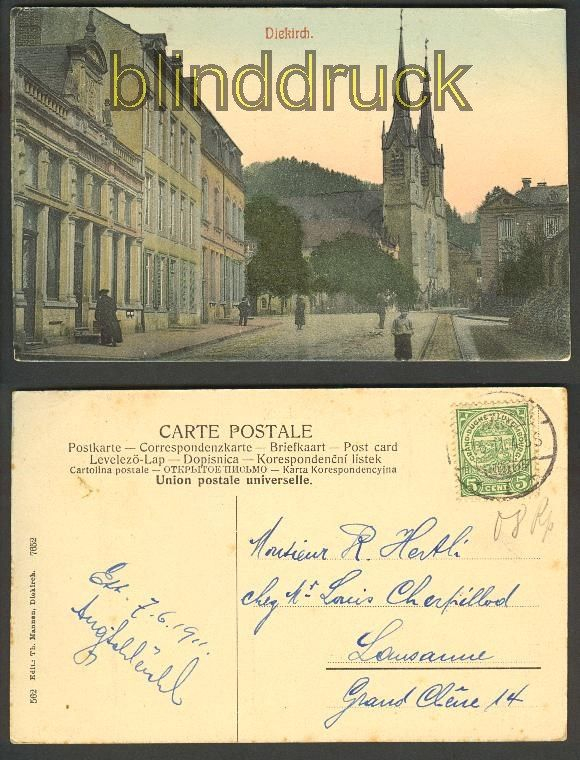 Diekirch.
blinddruck
CARTE POSTALE
Postkarte — Correspondenzkarte — Briefkaart — Post card
Levelező-Lap — Dopisnica — Korespondenční lístek
Cartolina postale — ОТКРЫТОЕ ПИСЬМО — Karta Korespondencyjna
Union postale universelle.
5 CENT. 5
08 Rp
Monsieur R. Hertli
chez Mr Louis Cherpillod
Lausanne
Grand Chêne 14
7.6.1911.
562 Edit: Th. Mannon, Diekirch. 7652